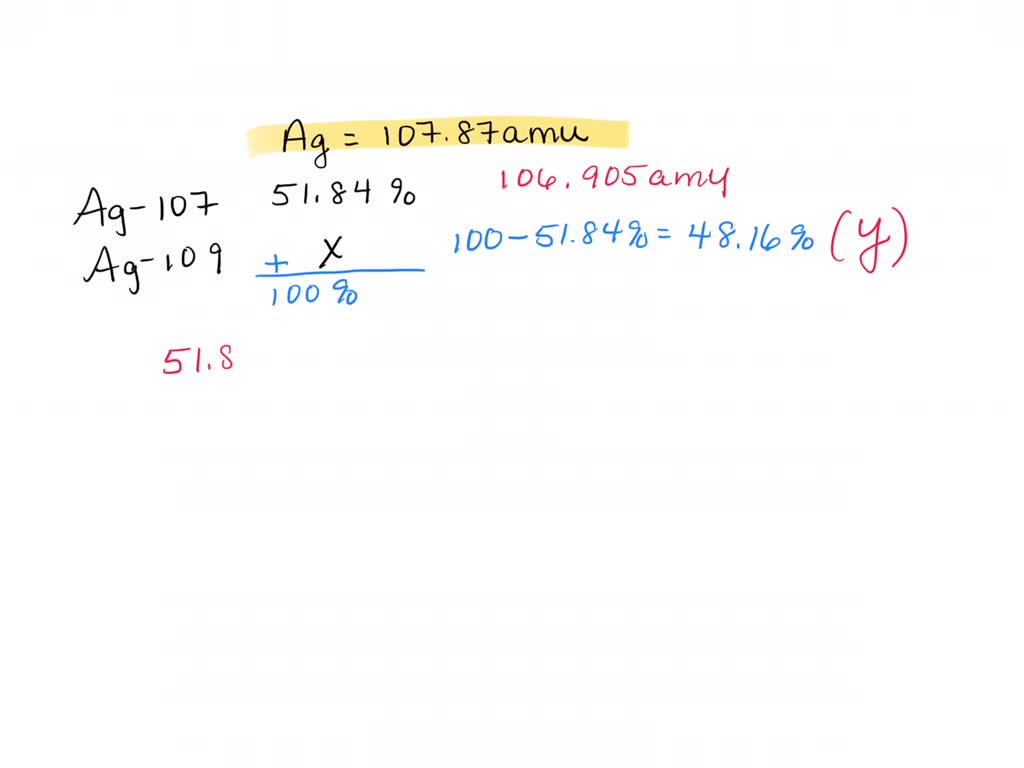 Ag = 107.87amu
Ag-107 51.84% 106.905amu
Ag-109 + X 100-51.84%=48.16% (y)
100%
51.8